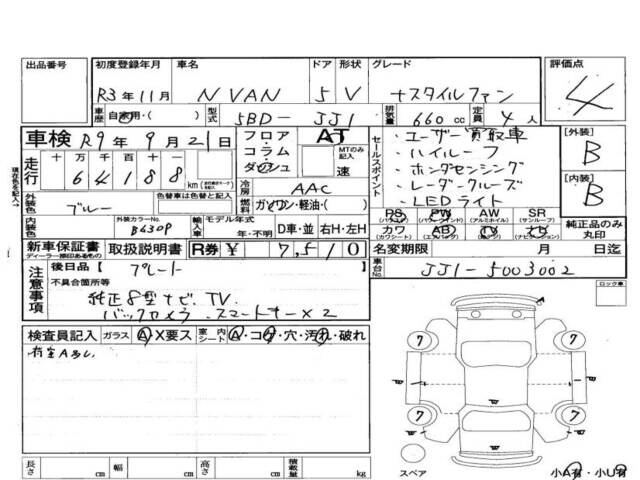 出品番号 初度登録年月 車名 ドア 形状 グレード 評価点
R3年11月 N VAN 5 V +スタイルファン 4
車歴 自家用・( ) 型式 5BD-JJ1 排気量 660cc 定員 4人
車検 R9年9月21日 フロア コラム ダッシュ AT MTのみ記入 速
セールスポイント
・ユーザー買取車
・ハイルーフ
・ホンダセンシング
・レーダークルーズ
・LEDライト
[外装] B
[内装] B
走行 十 万 千 百 十 一
6 4 1 8 8 km
冷房 AAC
外装色 ブルー 色替車は色替と記入 燃料 ガソリン・軽油・( )
PS (パワステ) PW (パワーウインドウ) AW (アルミホイル) SR (サンルーフ)
カワ (カワシート) AB (エアバック) TV ナビ
純正品のみ丸印
内装色 外装カラーNo. B630P 輸入車 モデル年式 年・不明 D車・並 右H・左H
新車保証書 ディーラー捺印あるもの 取扱説明書 R券 ¥ 7,510
名変期限 月 日迄
注意事項 後日品 [ プレート ]
車台No. JJ1-5003002
不具合箇所等
純正8型ナビ、TV、
バックカメラ、スマートキー×2
ロック車
検査員記入 ガラス A・X要ス 室内シート A・コゲ・穴・汚れ・破れ
7 7
7 7
長さ cm 幅 cm 高さ cm 積載量 kg
スペア 小A有・小U有
現在の色を記入